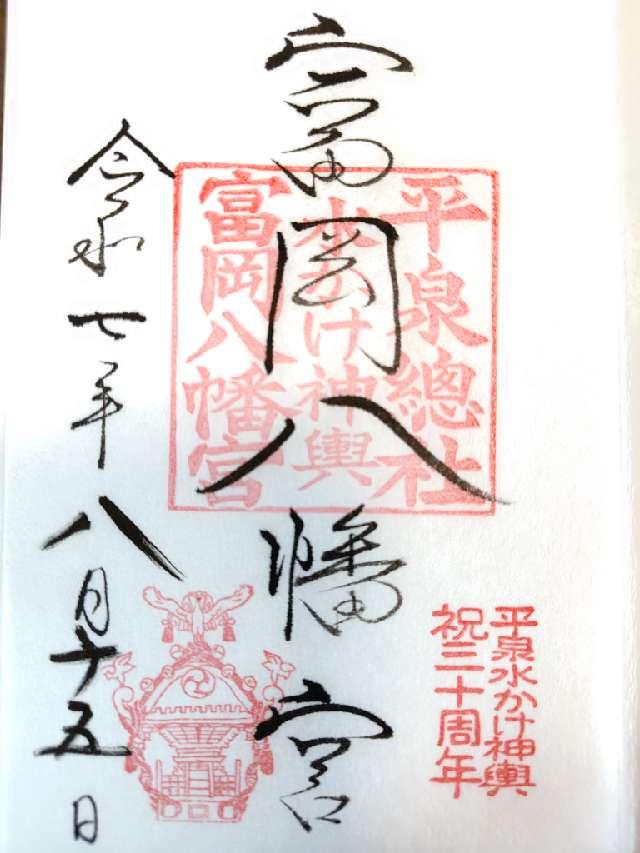 富岡八幡宮
平泉總社
水かけ神輿
富岡八幡宮
令和七年八月十五日
平泉水かけ神輿
祝三十周年